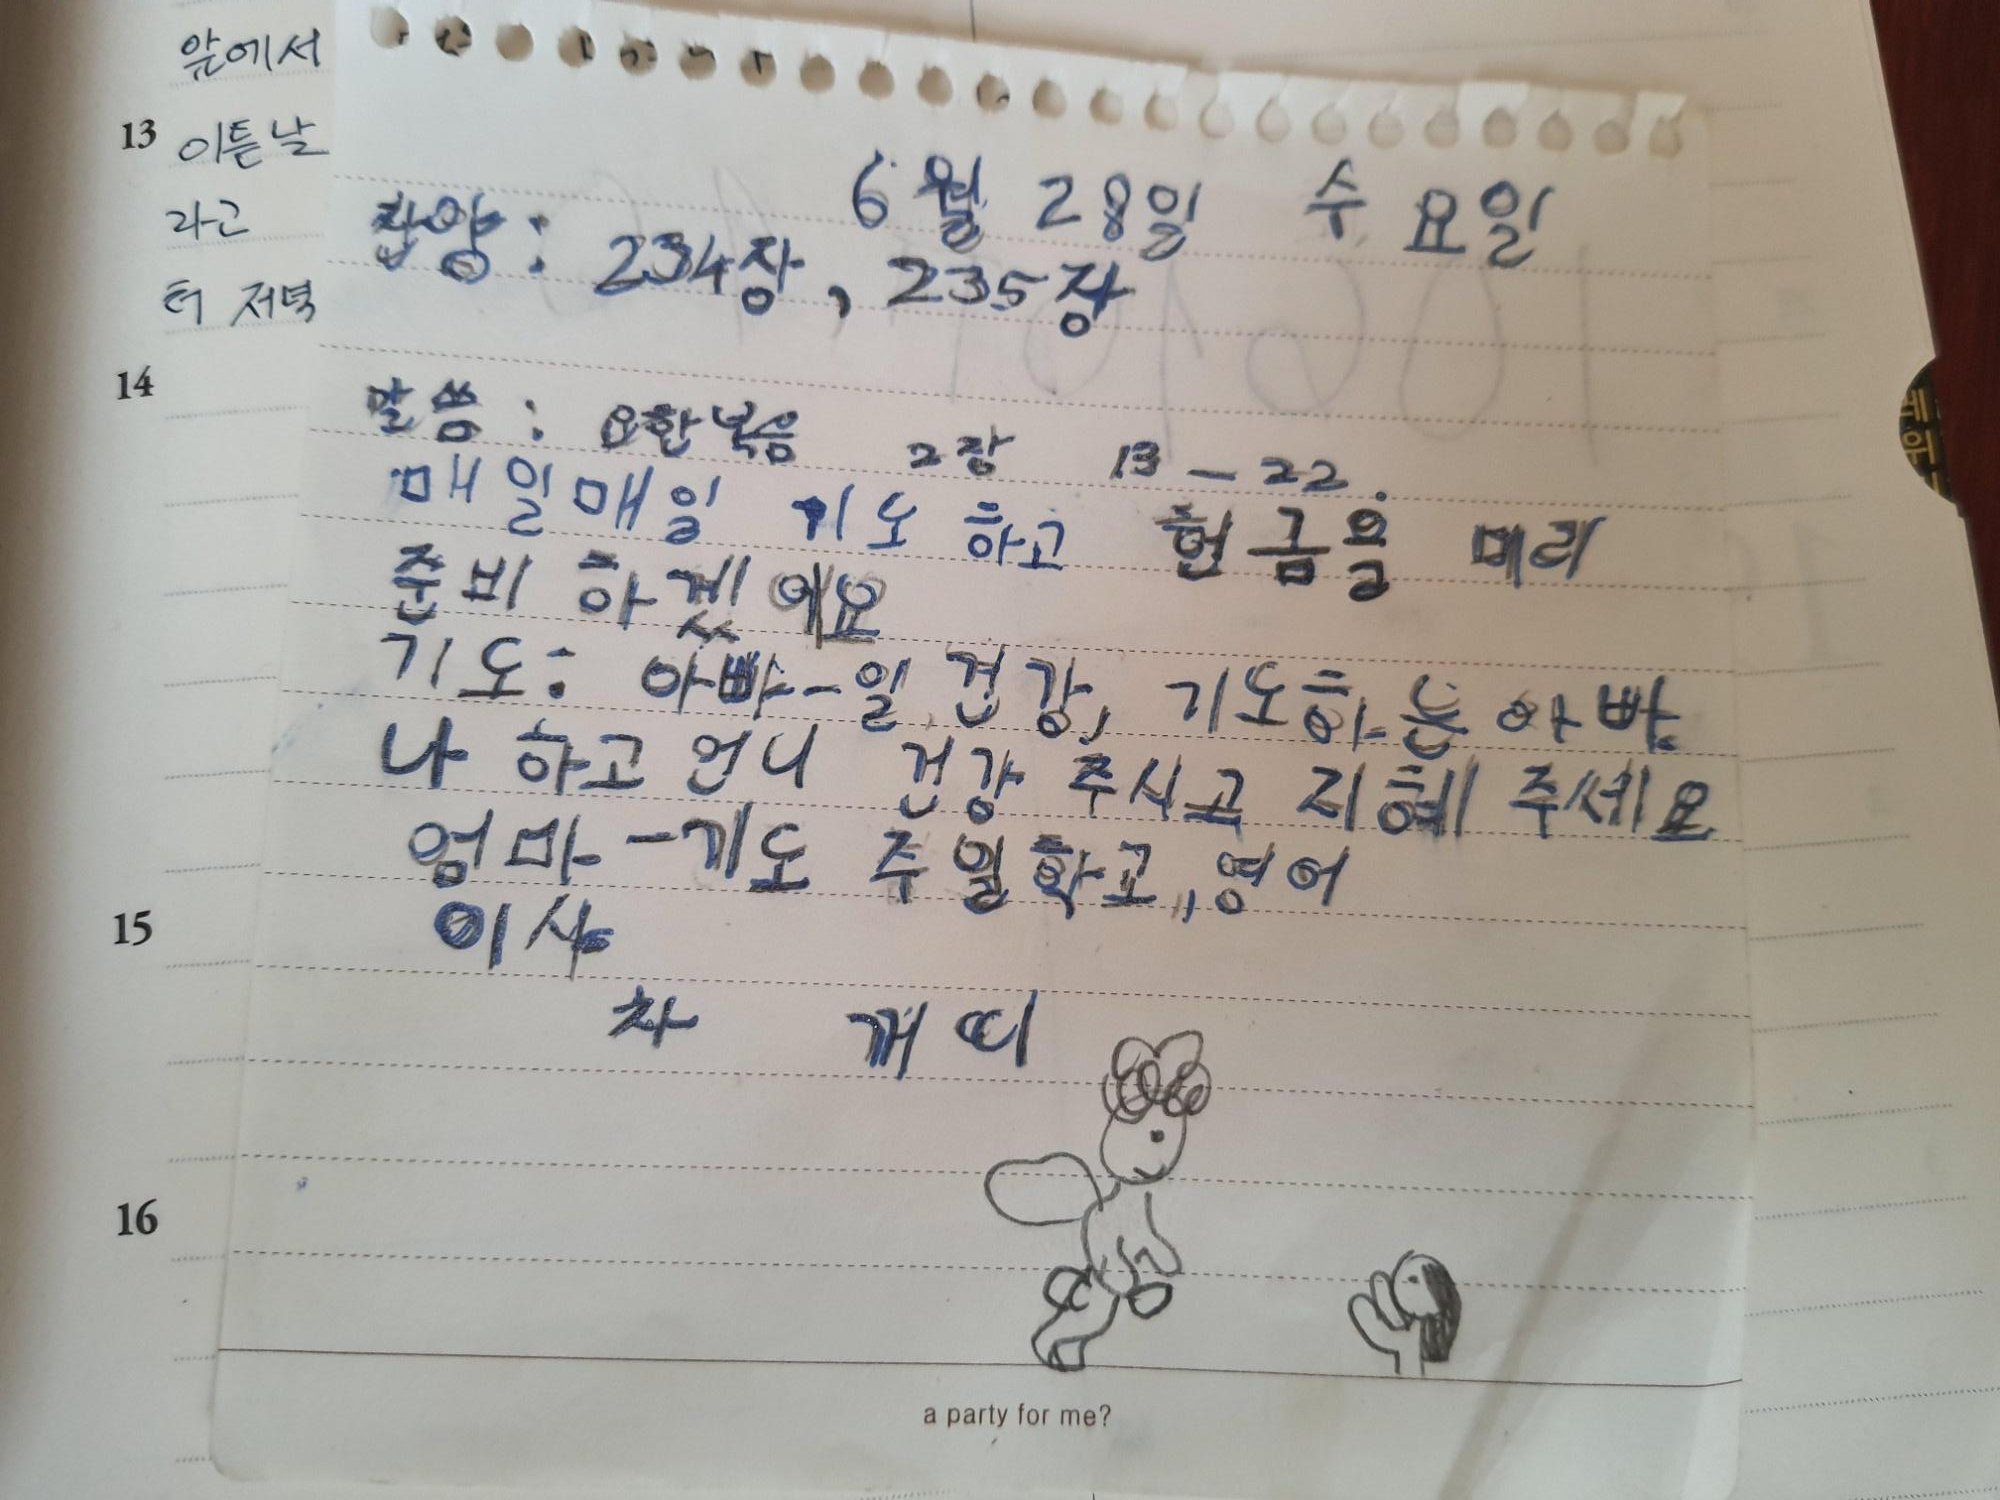 앞에서
13 이튿날
라고
터 저녁
14
15
16
6월 28일 수요일
찬양: 234장, 235장
말씀: 요한복음 2장 13-22.
매일매일 기도 하고 헌금을 미리
준비 하겠어요
기도: 아빠-일 건강, 기도하는 아빠
나 하고 언니 건강 주시고 지혜 주세요
엄마-기도 주일학교, 영어
이사
차 개띠
a party for me?